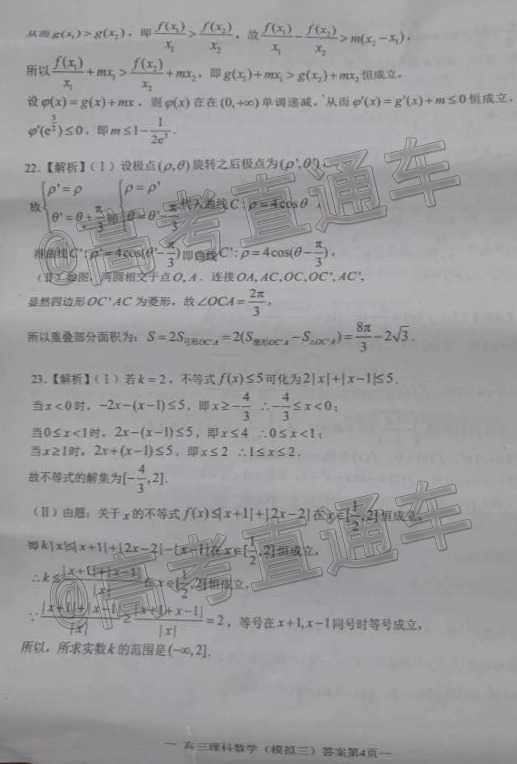 从而g(x₁)>g(x₂)，即f(x₁)/x₁>f(x₂)/x₂，故f(x₁)/x₁-f(x₂)/x₂>m(x₂-x₁)，
所以f(x₁)/x₁+mx₁>f(x₂)/x₂+mx₂，即g(x₁)+mx₁>g(x₂)+mx₂恒成立，
设φ(x)=g(x)+mx，则φ(x)在在(0,+∞)单调递减，从而φ'(x)=g'(x)+m≤0恒成立，
φ'(e^(5/2))≤0，即m≤1-1/(2e⁵)．
22.【解析】(Ⅰ)设极点(ρ,θ)旋转之后极点为(ρ',θ')，
故{ρ'=ρ θ'=θ+π/3 即{ρ=ρ' θ=θ'-π/3 代入曲线C:ρ=4cosθ，
得曲线C':ρ'=4cos(θ'-π/3)即曲线C':ρ=4cos(θ-π/3)，
(Ⅱ)如图，两圆相交于点O,A．连接OA,AC,OC,OC',AC'，
显然四边形OC'AC为菱形，故∠OCA=2π/3，
所以重叠部分面积为：S=2S弓形OC'A=2(S扇形OC'A-S△OC'A)=8π/3-2√3．
23.【解析】(Ⅰ)若k=2，不等式f(x)≤5可化为2|x|+|x-1|≤5．
当x<0时，-2x-(x-1)≤5，即x≥-4/3 ∴-4/3≤x<0；
当0≤x<1时，2x-(x-1)≤5，即x≤4 ∴0≤x<1；
当x≥1时，2x+(x-1)≤5，即x≤2 ∴1≤x≤2．
故不等式的解集为[-4/3,2]．
(Ⅱ)由题：关于x的不等式f(x)≤|x+1|+|2x-2|在x∈[1/2,2]恒成立，
即k|x|≤|x+1|+|2x-2|-|x-1|在x∈[1/2,2]恒成立，
∴k≤(|x+1|+|x-1|)/|x|在x∈[1/2,2]恒成立，
∵(|x+1|+|x-1|)/|x|≥|x+1+x-1|/|x|=2，等号在x+1,x-1同号时等号成立，
所以，所求实数k的范围是(-∞,2]．
@高考直通车
@高考直通车
— 高三理科数学（模拟三）答案第4页—